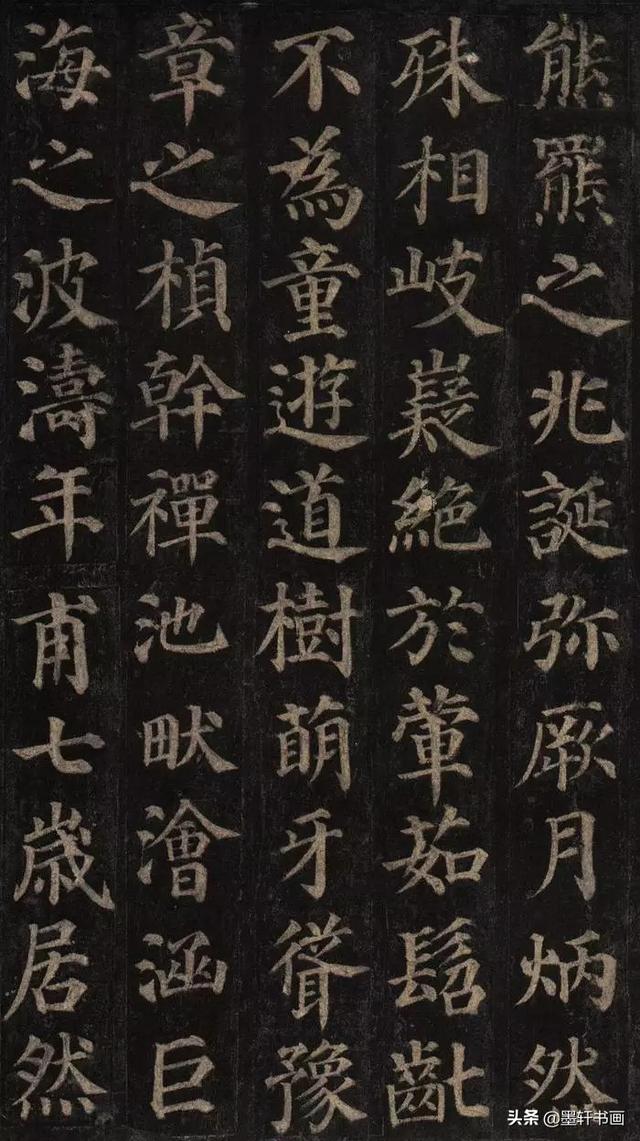 熊羆之兆誕弥厥月炳然
殊相岐嶷絕於葷茹髫齔
不為童遊道樹萌牙聳豫
章之楨幹禪池畎澮涵巨
海之波濤年甫七歲居然
头条 @墨轩书画